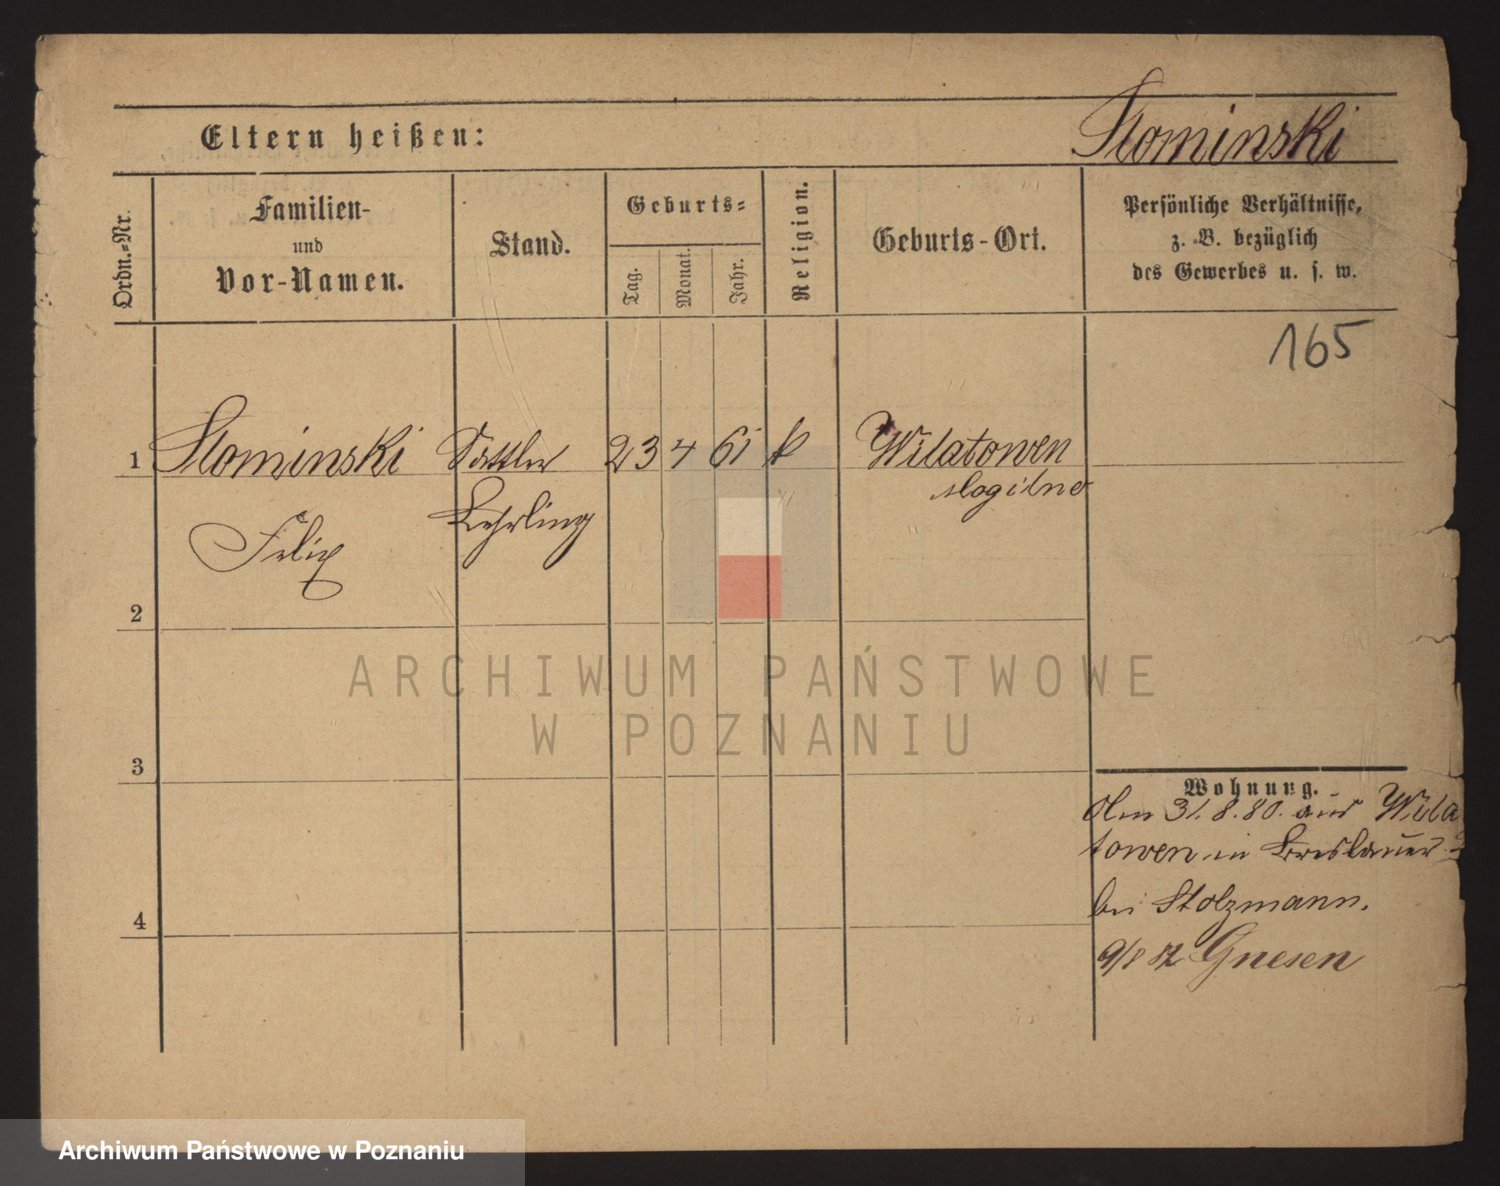 Slominski
Eltern heißen:
Ordn.-Nr.
Familien-
und
Vor-Namen.
Stand.
Geburts-
Tag.
Monat.
Jahr.
Religion.
Geburts-Ort.
Persönliche Verhältnisse,
z. B. bezüglich
des Gewerbes u. s. w.
165
1 Slominski Sattler 23 4 61 k Wilatowen
Mogilno
Lehrling
Felix
2
3
4
Wohnung.
Am 31.8.80. aus Wila
towen in Breslauer
bei Stolzmann.
9/8 82 Gnesen
ARCHIWUM PAŃSTWOWE
W POZNANIU
Archiwum Państwowe w Poznaniu